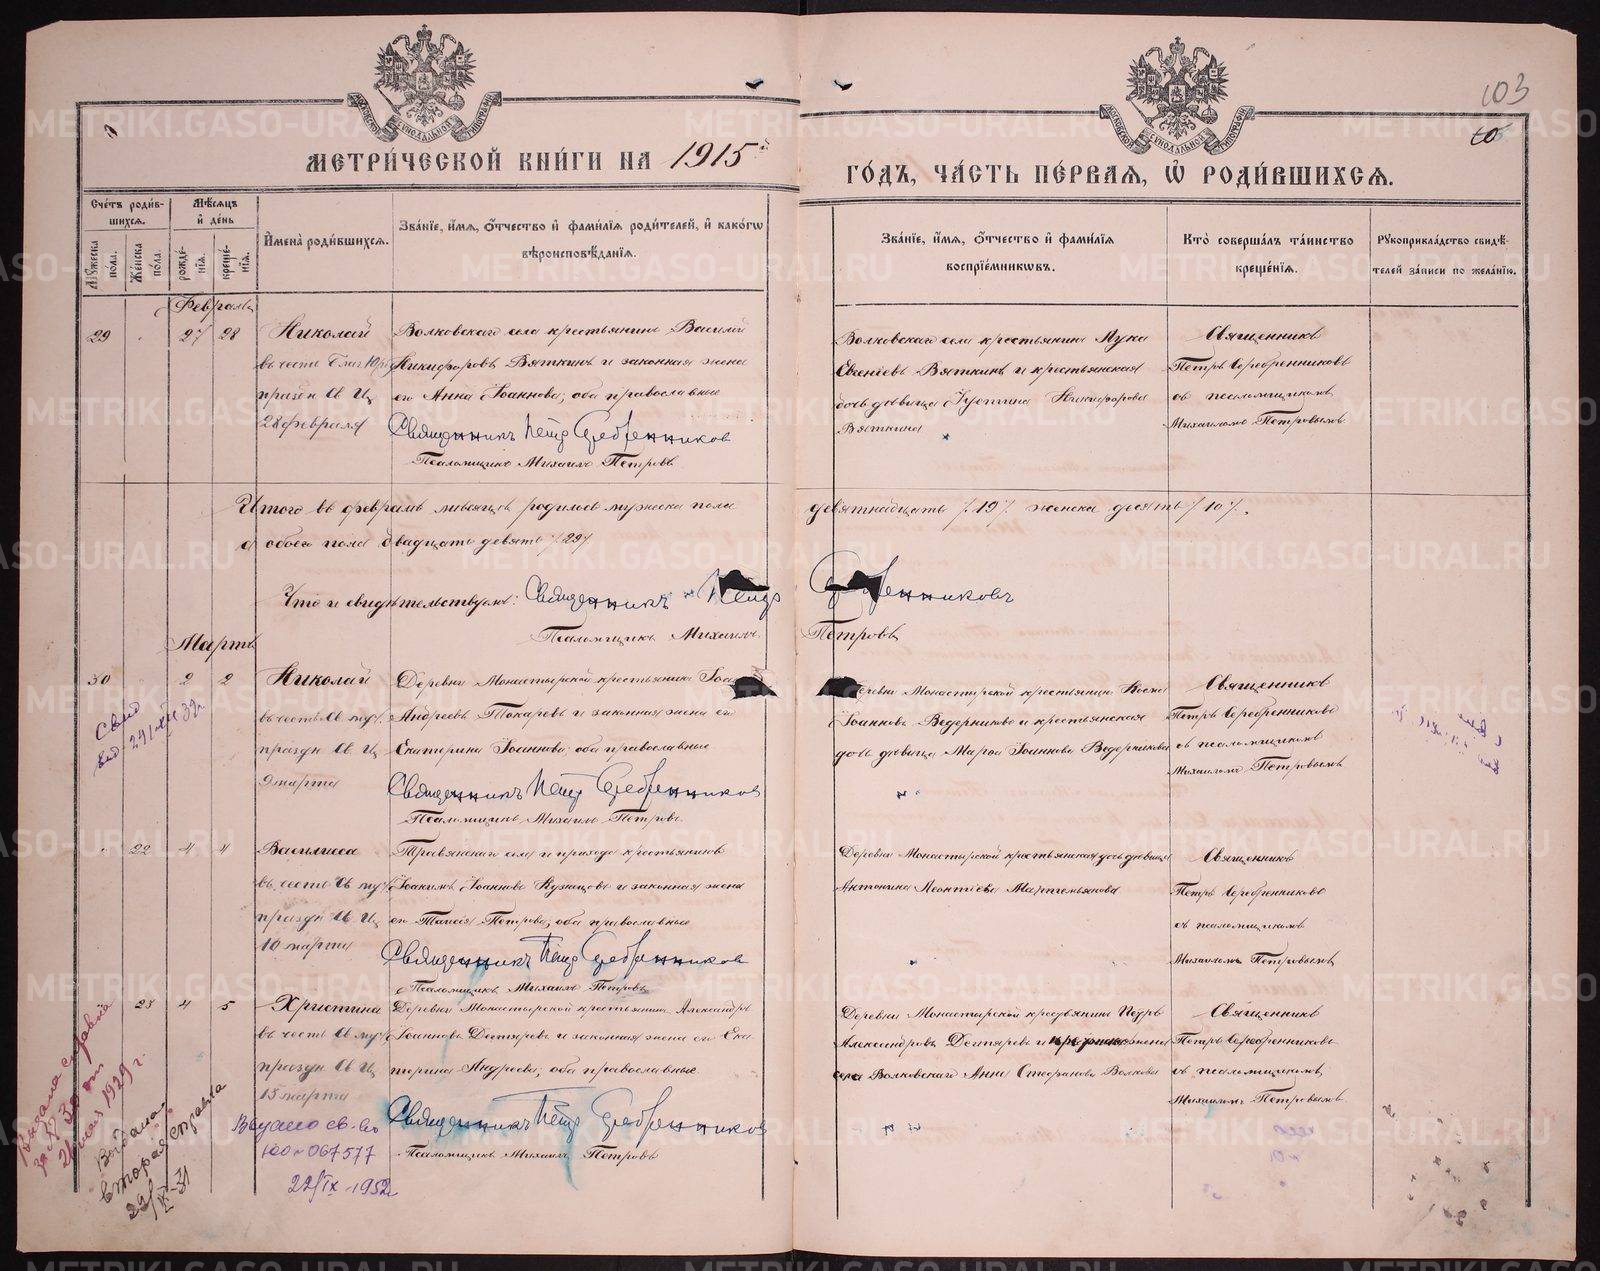 103
МЕТРИ́ЧЕСКОЙ КНИ́ГИ НА 1915й ГО́ДЪ, ЧА́СТЬ ПЕ́РВАЯ, Ѡ РОДИ́ВШИХСЯ.
Сче́тъ роди́в-
шихся.
Мѣ́сяцъ
и де́нь
Мꙋ́жеска
по́ла.
Же́нска
по́ла.
рожде́-
нія.
креще́-
нія.
И́мена̀ роди́вшихся.
Зва́ніе, и́мя, о́тчество и фами́лія роди́телей, и како́гѡ
вѣроисповѣ́данія.
Зва́ніе, и́мя, о́тчество и фами́лія
воспріе́мникѡвъ.
Кто̀ соверша́лъ та́инство
креще́нія.
Рꙋкоприкла́дство свидѣ́-
телей за́писи по жела́нію.
Февраль
29 27 28 Николай
въ честь
праздн. Св. Ц.
28 февраля
Волковскаго села крестьянинъ Василий
Никифоровъ Вяткинъ и законная жена
его Анна Іоаннова; оба православные
Священникъ Петр Серебренников
Псаломщикъ Михаилъ Петровъ
Волковскаго села крестьянинъ Лука
Евгеніевъ Вяткинъ и крестьянская
дочь девица Іустина Никифорова
Вяткина
Священникъ
Петръ Серебренниковъ
съ псаломщикомъ
Михаиломъ Петровымъ
Итого въ феврале месяце родилось мужска пола девятнадцать /19/ женска десять /10/,
а обоего пола двадцать девять /29/
Что и свидетельствуемъ: Священникъ Петр Серебренниковъ
Псаломщикъ Михаилъ Петровъ
Мартъ
30 2 2 Николай
въ честь св. муч.
праздн. Св. Ц.
9 марта
Деревни Монастырской крестьянинъ
Андреевъ Токаревъ и законная жена его
Екатерина Іоаннова; оба православные
Священникъ Петр Серебренников
Псаломщикъ Михаилъ Петровъ
Деревни Монастырской крестьянинъ Косма
Іоанновъ Ведерниковъ и крестьянская
дочь девица Марѳа Іоаннова Ведерникова
Священникъ
Петръ Серебренниковъ
съ псаломщикомъ
Михаиломъ Петровымъ
22 4 4 Василисса
въ честь св. муч.
праздн. Св. Ц.
10 марта
Травянскаго села и прихода крестьянинъ
Іоакимъ Іоанновъ Кузнецовъ и законная жена
его Таисія Петрова; оба православные
Священникъ Петр Серебренников
Псаломщикъ Михаилъ Петровъ
Деревни Монастырской крестьянская дочь девица
Антонина Леонтіева Мартемьянова
Священникъ
Петръ Серебренниковъ
съ псаломщикомъ
Михаиломъ Петровымъ
23 4 5 Христина
въ честь св. муч.
праздн. Св. Ц.
15 марта
Деревни Монастырской крестьянинъ Александръ
Іоанновъ Дегтяревъ и законная жена его Ека
терина Андреева; оба православные
Священникъ Петр Серебренников
Псаломщикъ Михаилъ Петровъ
Деревни Монастырской крестьянинъ Петръ
Александровъ Дегтяревъ и жена
села Волковскаго Анна Стефанова Волкова
Священникъ
Петръ Серебренниковъ
съ псаломщикомъ
Михаиломъ Петровымъ
Выдана справка
за № 30 от
1929 г.
Выдана
вторая справка
Выдано св-во
ЮО № 067577
22/IX-1952г
METRIKI.GASO-URAL.RU